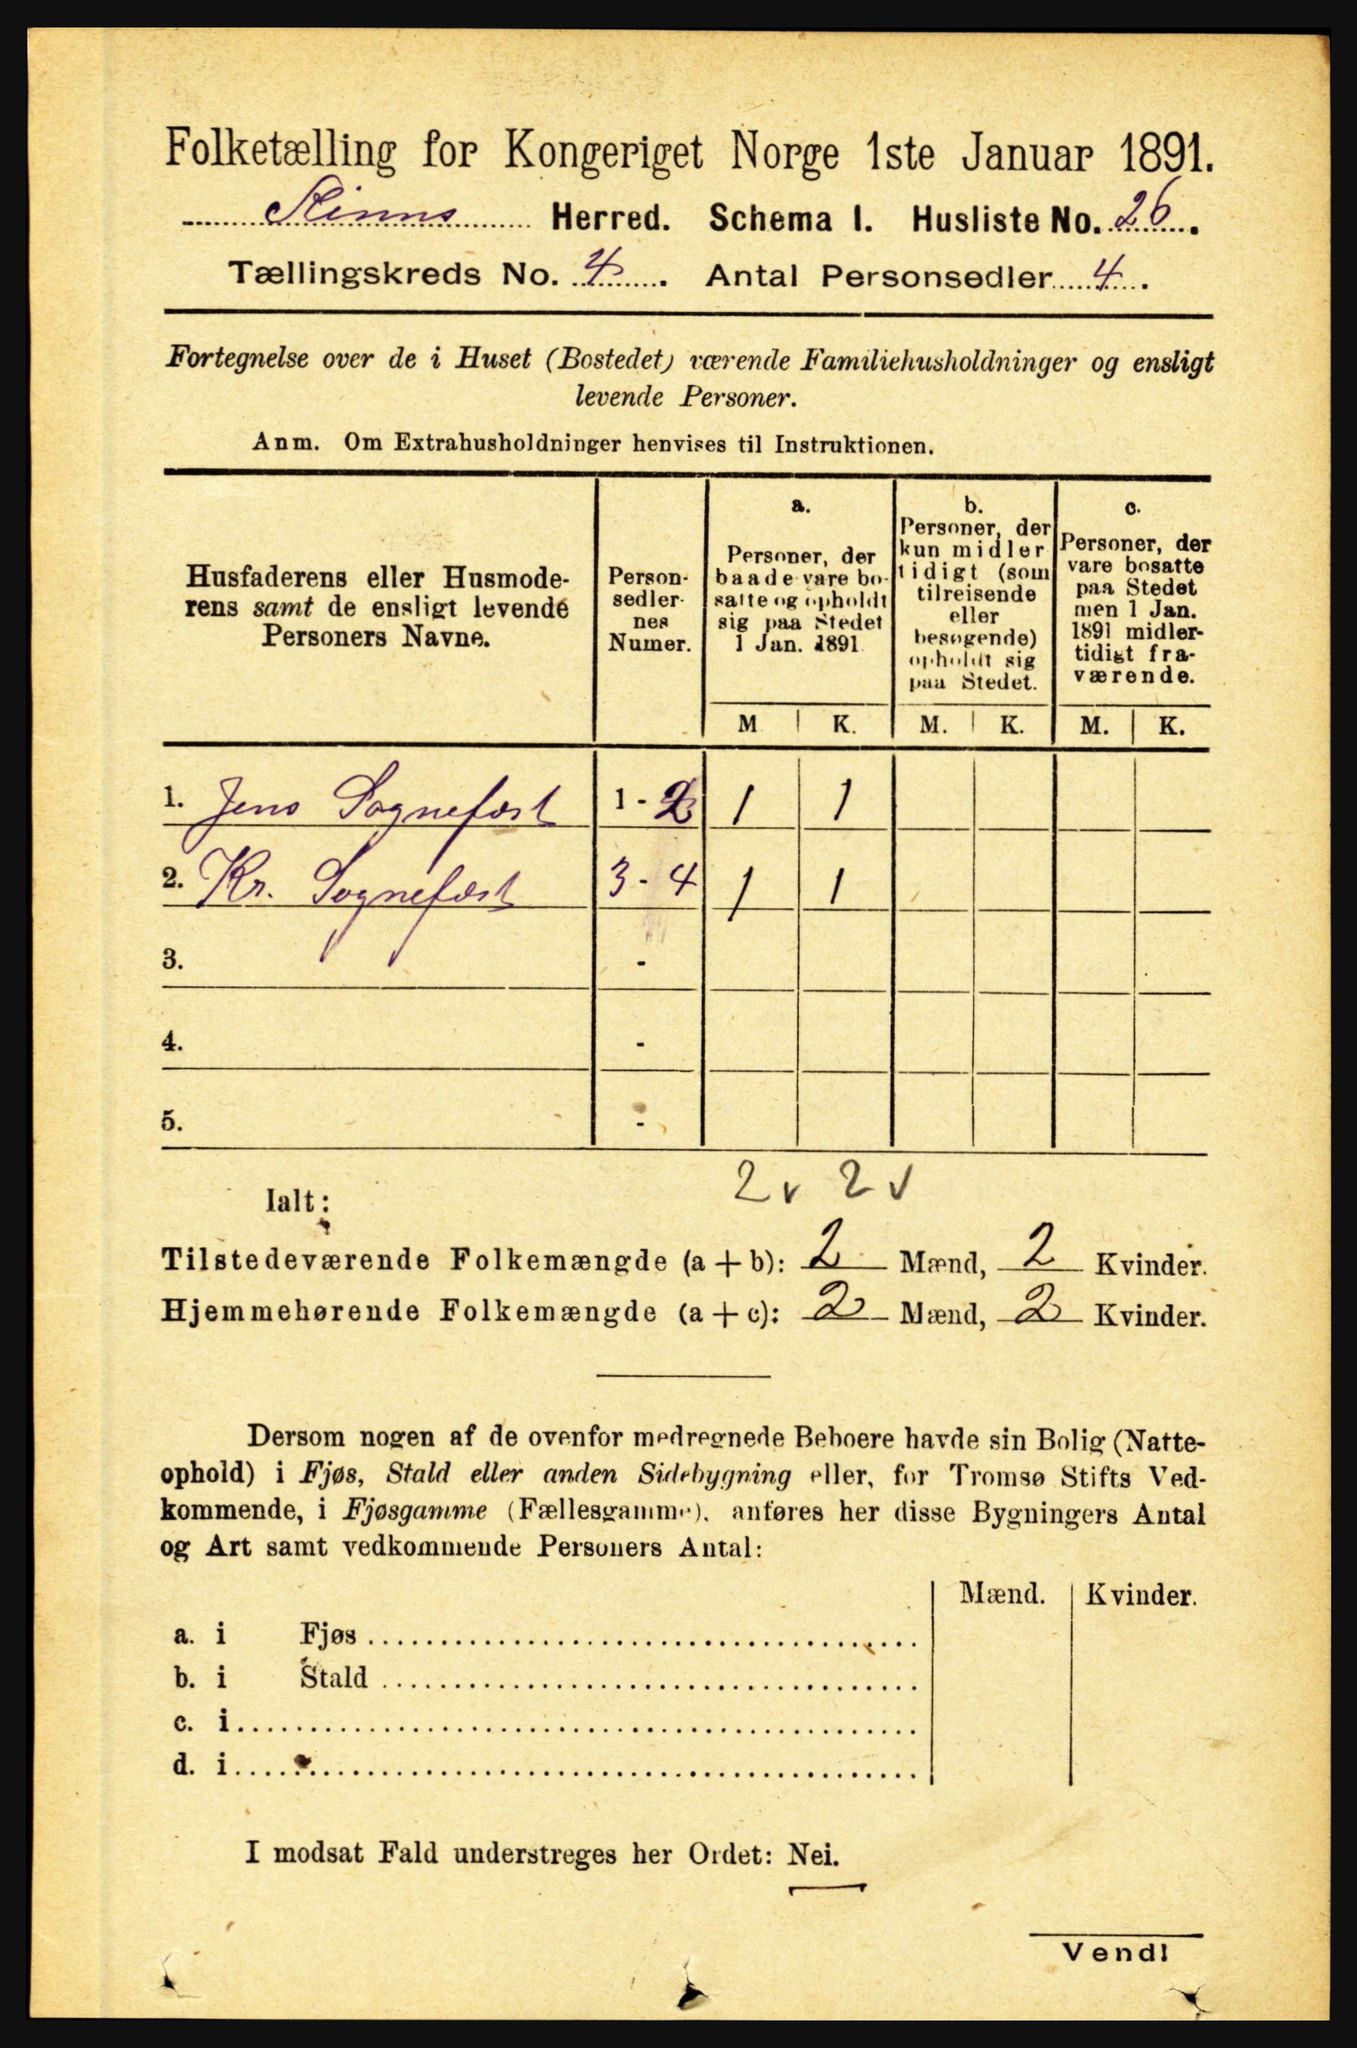 Folketælling for Kongeriget Norge 1ste Januar 1891.
Kinns Herred. Schema I. Husliste No. 26.
Tællingskreds No. 4. Antal Personsedler 4.
Fortegnelse over de i Huset (Bostedet) værende Familiehusholdninger og ensligt
levende Personer.
Anm. Om Extrahusholdninger henvises til Instruktionen.
Husfaderens eller Husmode-
rens samt de ensligt levende
Personers Navne.
Person-
sedler-
nes
Numer.
a.
Personer, der
baade vare bo-
satte og opholdt
sig paa Stedet
1 Jan. 1891
b.
Personer, der
kun midler
tidigt (som
tilreisende
eller
besøgende)
opholdt sig
paa Stedet.
c.
Personer, der
vare bosatte
paa Stedet
men 1 Jan.
1891 midler-
tidigt fra-
værende.
M K. M. K. M. K.
1. Jens Sognefæst 1 - 2 1 1
2. Kr. Sognefæst 3 - 4 1 1
3. -
4. -
5. -
2 v 2 v
Ialt:
Tilstedeværende Folkemængde (a + b): 2 Mænd, 2 Kvinder.
Hjemmehørende Folkemængde (a + c): 2 Mænd, 2 Kvinder.
Dersom nogen af de ovenfor medregnede Beboere havde sin Bolig (Natte-
ophold) i Fjøs, Stald eller anden Sidebygning eller, for Tromsø Stifts Ved-
kommende, i Fjøsgamme (Fællesgamme), anføres her disse Bygningers Antal
og Art samt vedkommende Personers Antal:
Mænd. Kvinder.
a. i Fjøs
b. i Stald
c. i
d. i
I modsat Fald understreges her Ordet: Nei.
Vend!